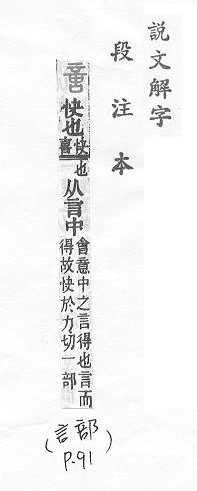 説文解字
段注本
快也快喜也从言中會意中之言得也言而得故快於力切一部
(言部)
P.91